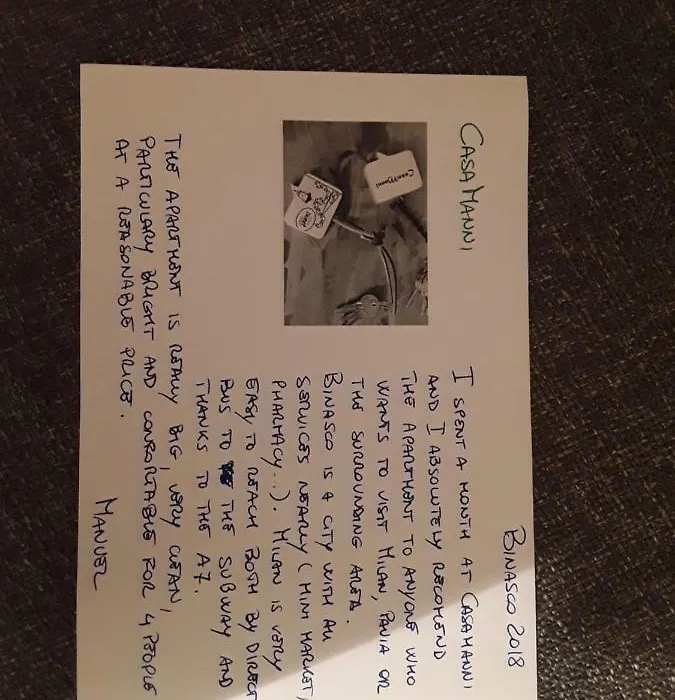 BINASCO 2018
CASA MANNI
CasaManni
I SPENT A MONTH AT CASAMANNI
AND I ABSOLUTELY RECOMEND
THE APARTMENT TO ANYONE WHO
WANTS TO VISIT MILAN, PAVIA OR
THE SURROUNDING AREA.
BINASCO IS A CITY WITH ALL
SERVICES NEARLY (MINI MARKET,
PHARMACY...). MILAN IS VERY
EASY TO REACH BOTH BY DIRECT
BUS TO THE SUBWAY AND
THANKS TO THE A7.
THE APARTMENT IS REALLY BIG, VERY CLEAN,
PARTICULARY BRIGHT AND CONFORTABLE FOR 4 PEOPLE
AT A REASONABLE PRICE.
MANUEL